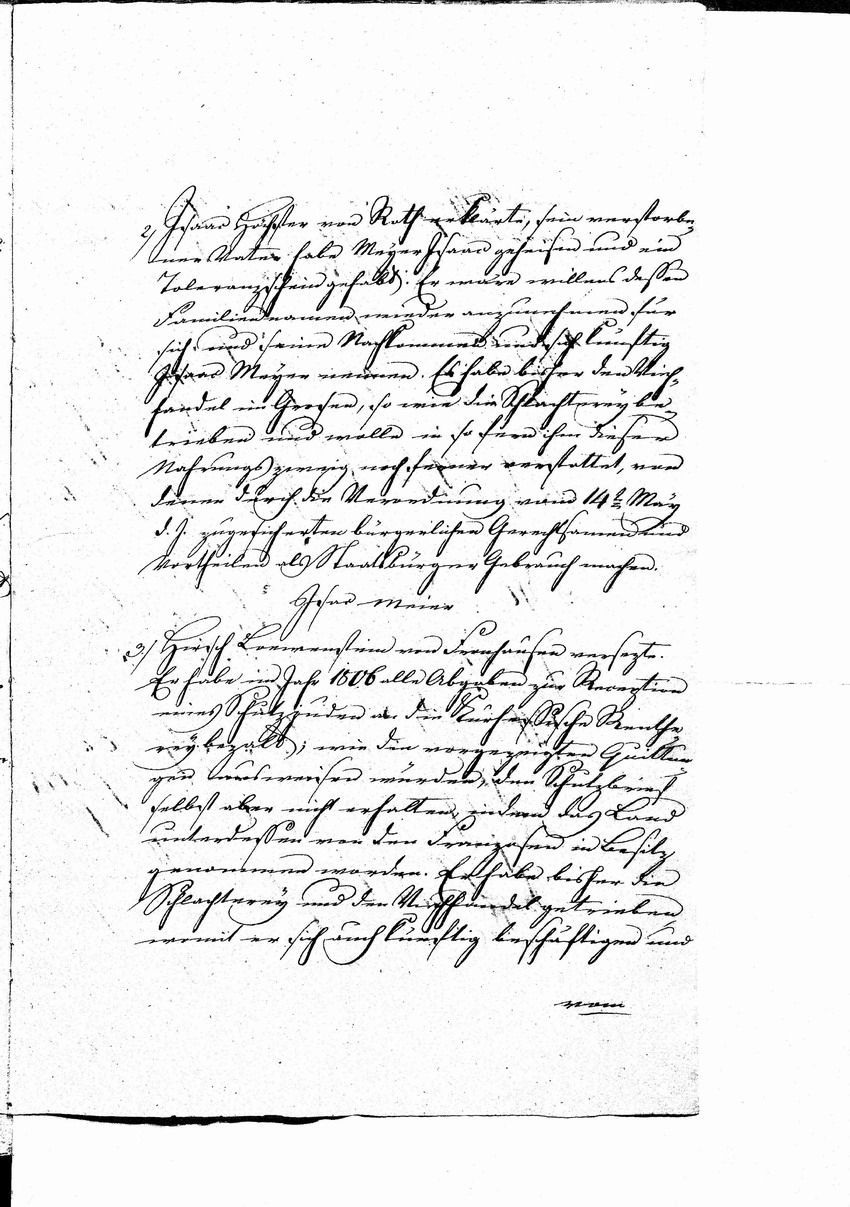 2) Isaac Höchster von Roth erklärte, sein verstorbe-
ner Vater habe Meyer Isaac geheisen und ein
Toleranzschein gehabt. Er wäre willens dessen
Familiennamen wieder anzunehmen für
sich und seine Nachkommen und sich künftig
Isaac Meyer nennen. Er habe bisher den Vieh-
handel im Grosen, so wie die Schlachterey be-
trieben und wolle in so fern ihm dieser
Nahrungszweig noch ferner verstattet, von
denen durch die Verordnung vom 14t May
d. J. zugesicherten bürgerlichen Gerechtsamen und
Vortheilen als Staatsbürger Gebrauch machen.
Isac Meier
3) Hirsch Loewenstein von Fronhausen versezte.
Er habe im Jahr 1806 alle Abgaben zur Reception
eines Schutzjuden an die Kurhessische Renthe-
rey bezalt; wie die vorgezeigten Quittun-
gen ausweisen würden, den Schutzbrief
selbst aber nicht erhalten, indem das Land
unterdessen von den Franzosen in Besitz
genommen worden. Er habe bisher die
Schlachterey und den Viehhandel getrieben
womit er sich auch künftig beschäftigen und
vom